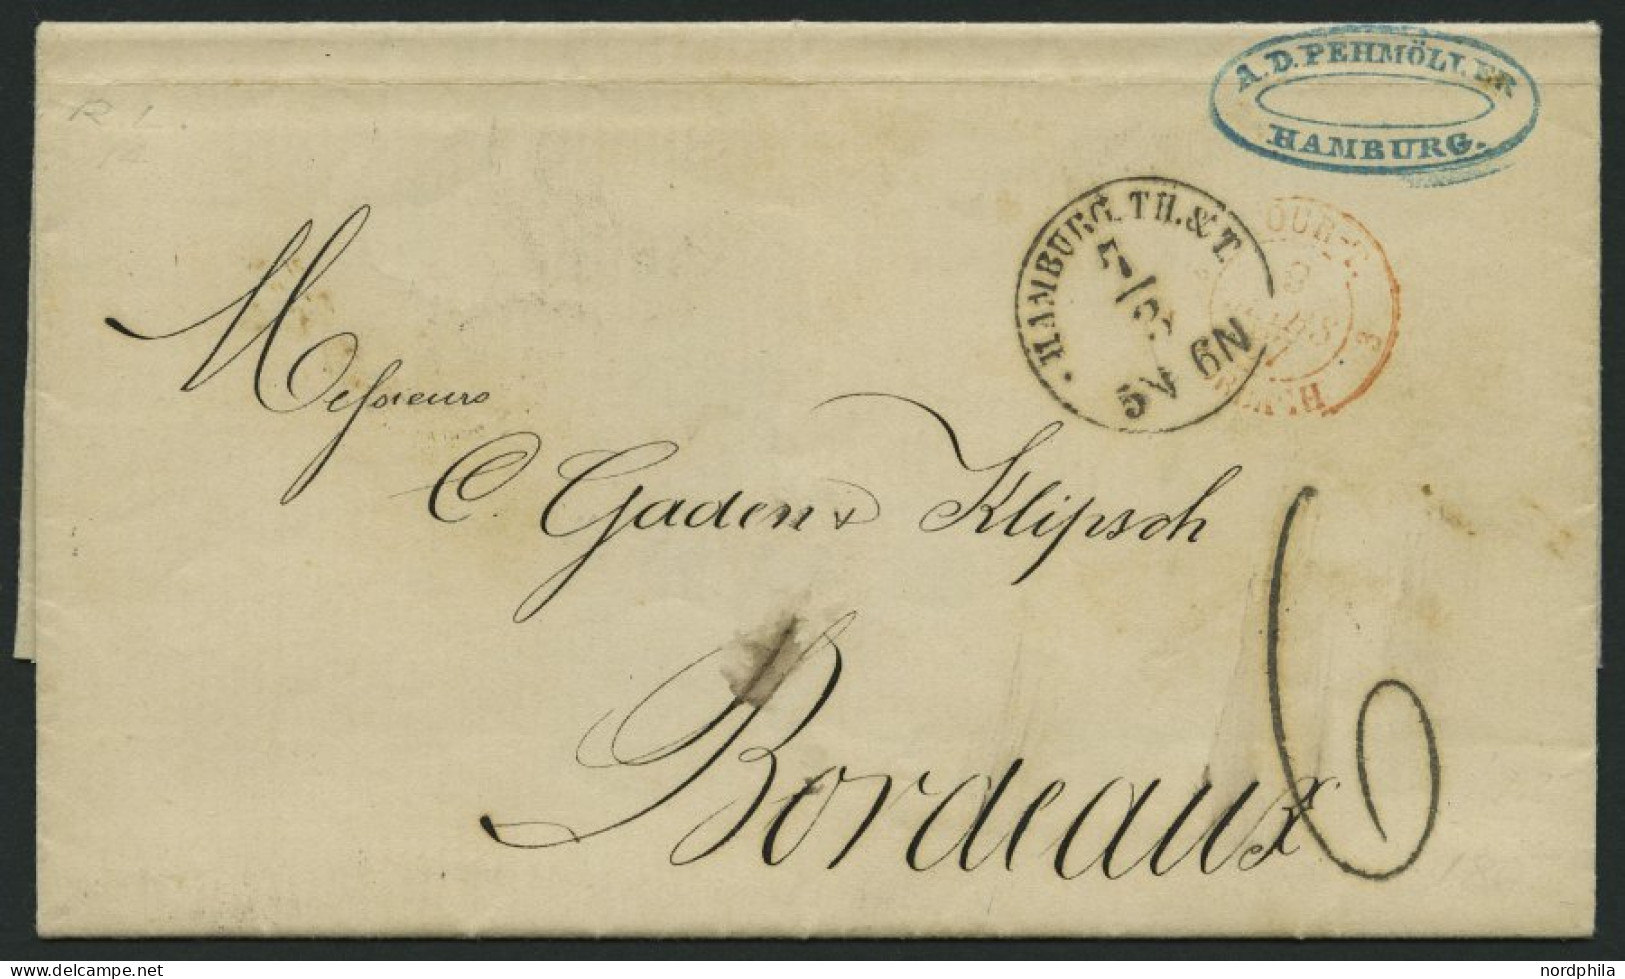 A. D. PEHMÖLLER
HAMBURG.
R 1
HAMBURG. TH. & T.
7/3
5N 6N
TOUR-T. 3
9
MARS
Messieurs
C. Gaden & Klipsch
Bordeaux
6
delcampe.net
nordphila